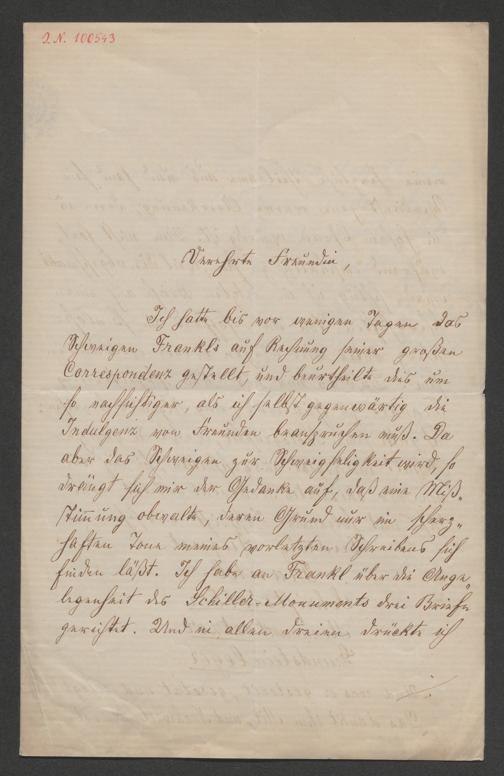 J. N. 100543
Verehrte Freundin,
Ich hatte bis vor wenigen Tagen das
Schweigen Frankls auf Rechnung seiner großen
Correspondenz gestellt, und beurtheilte dies um
so nachsichtiger, als ich selbst gegenwärtig die
Indulgenz von Freunden beanspruchen muß. Da
aber das Schweigen zur Schweigseligkeit wird, so
drängt sich mir der Gedanke auf, daß eine Miß-
stimmung obwalte, deren Grund nur im scherz-
haften Tone meines vorletzten Schreibens sich
finden läßt. Ich habe an Frankl über die Ange-
legenheit des Schiller-Monuments drei Briefe
gerichtet. Und in allen dreien drückte ich